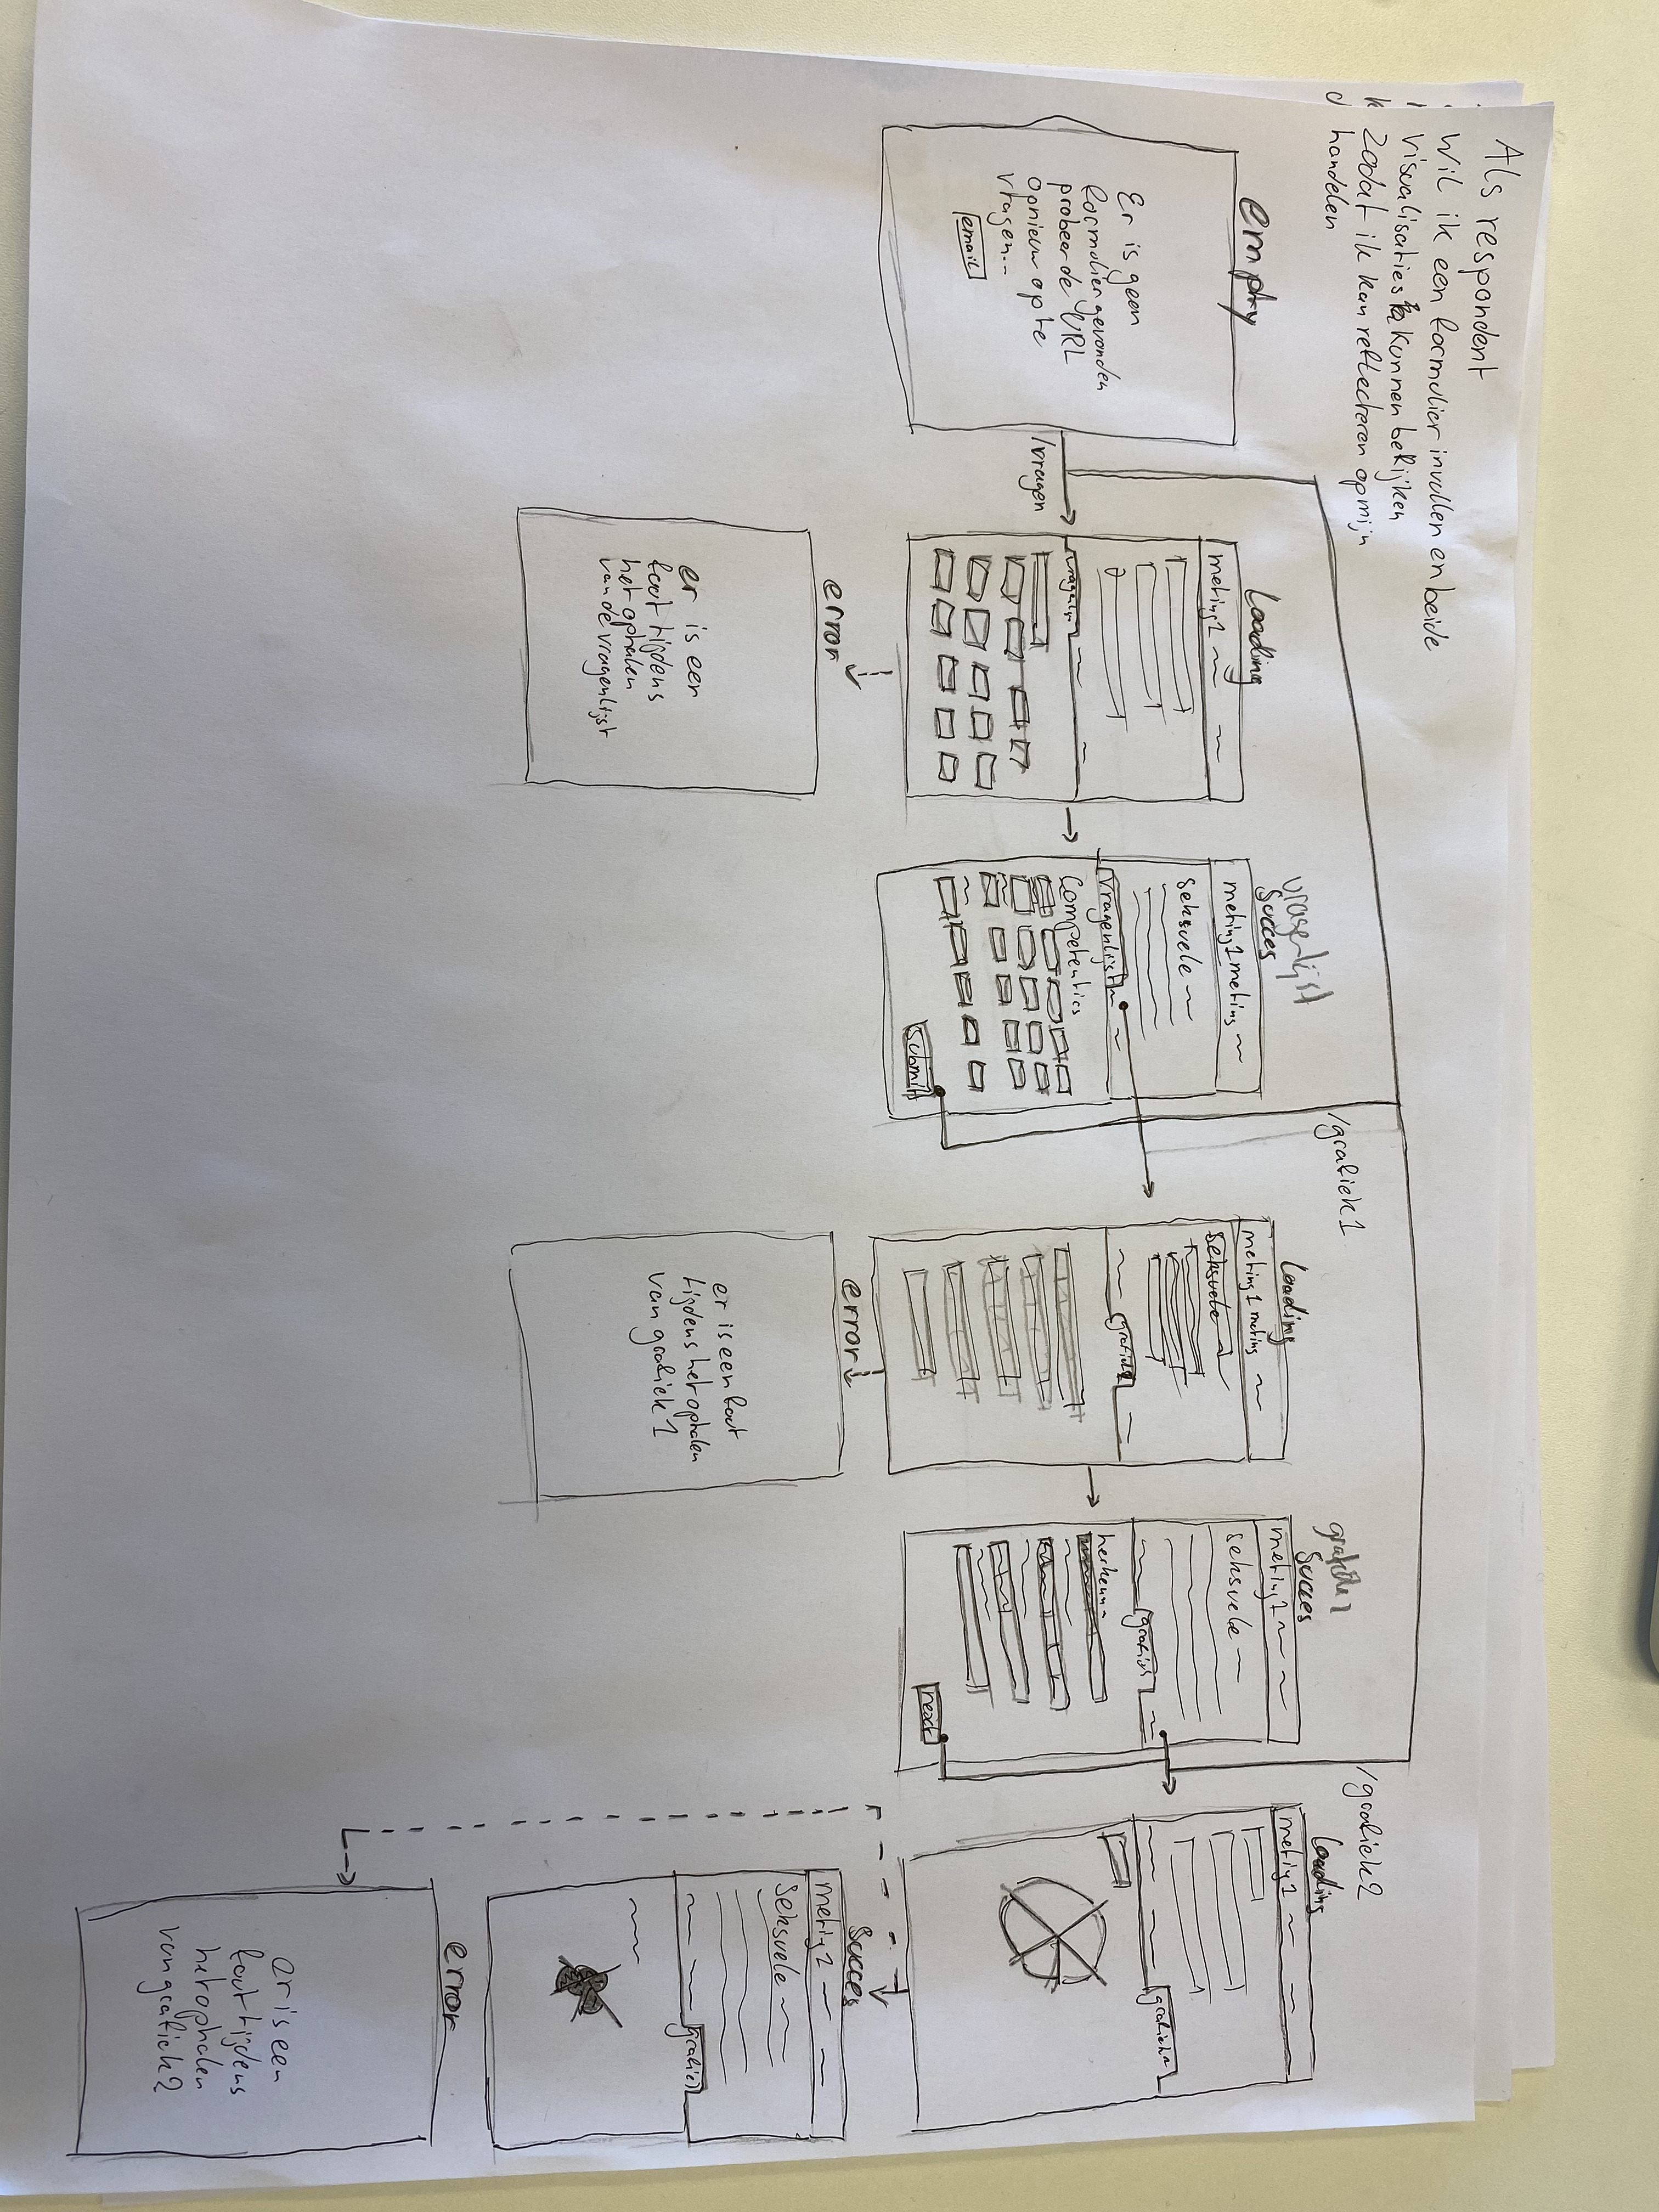 Als respondent
wil ik een formulier invullen en beide
visualisaties kunnen bekijken
Zodat ik kan reflecteren op mijn
handelen
empty
Er is geen
formulier gevonden
probeer de URL
opnieuw op te
vragen...
email
/vragen
Loading
meting 1
vragen
error
er is een
fout tijdens
het ophalen
van de vragenlijst
vragenlijst
Succes
meting 1 meting
seksuele
vragenlijst
Competenties
Submit
/grafiek 1
Loading
meting 1 meting
seksuele
grafiek
error
er is een fout
tijdens het ophalen
van grafiek 1
Succes
meting 1
seksuele
grafiek
herkenn
next
/grafiek 2
Loading
meting 1
grafiek
Succes
meting 1
seksuele
grafiek
error
er is een
fout tijdens
het ophalen
van grafiek 2